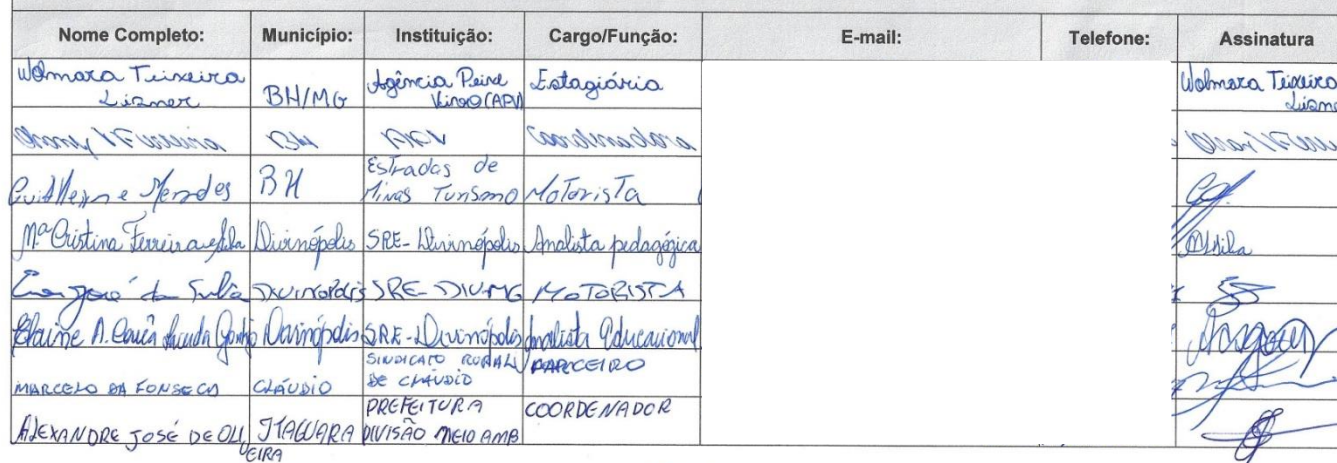 Nome Completo: Município: Instituição: Cargo/Função: E-mail: Telefone: Assinatura
Wolmara Teixeira Lisner BH/MG Agência Peixe Vivo (APV) Estagiária Wolmara Teixeira Lisner
BH APV Coordenadora
Guilherme Mendes BH Estradas de Minas Turismo Motorista
Mª Cristina Ferreira Divinópolis SRE-Divinópolis Analista pedagógica
José da Silva Divinópolis SRE-DIV-MG MOTORISTA
Elaine A. Gontijo Divinópolis SRE-Divinópolis Analista Educacional
MARCELO DA FONSECA CLÁUDIO SINDICATO RURAL DE CLÁUDIO PARCEIRO
ALEXANDRE JOSÉ DE OLIVEIRA ITAGUARA PREFEITURA DIVISÃO MEIO AMB COORDENADOR